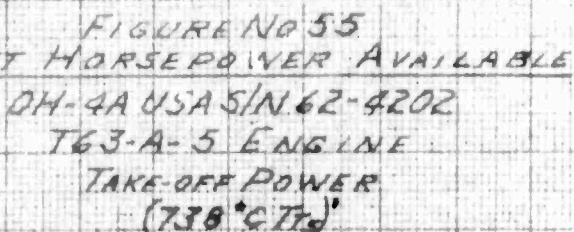 FIGURE NO 55
T HORSEPOWER AVAILABLE
OH-4A USA S/N 62-4202
T63-A-5 ENGINE
TAKE-OFF POWER
(738 °C